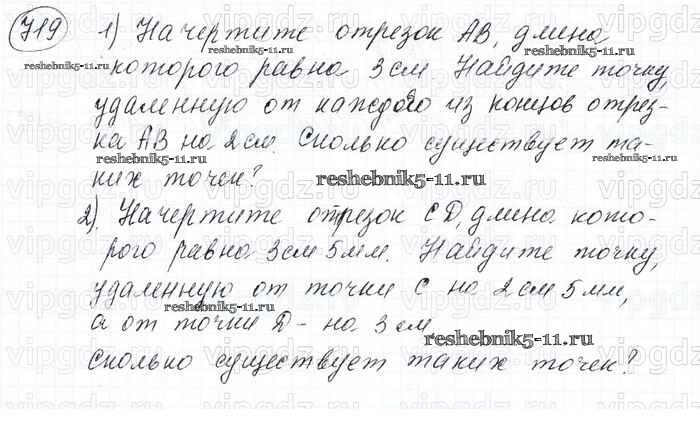 719 1) Начертите отрезок АВ, длина
reshebnik5-11.ru reshebnik5-11.ru
которого равна 3 см Найдите точку,
удаленную от каждого из концов отрез-
ка АВ на 2 см. Сколько существует та-
reshebnik5-11.ru reshebnik5-11.ru
ких точек?
reshebnik5-11.ru
2). Начертите отрезок CD, длина кото-
рого равна 3 см 5 мм. Найдите точку,
удаленную от точки С на 2 см 5 мм,
а от точки D - на 3 см
reshebnik5-11.ru
Сколько существует таких точек?